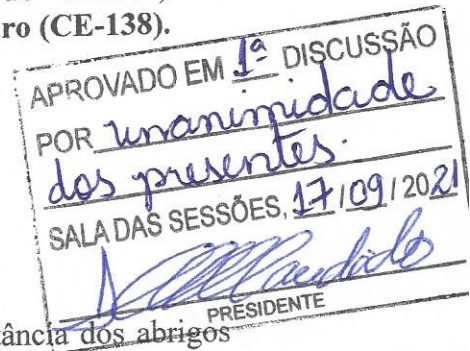 ro (CE-138).
APROVADO EM 1ª DISCUSSÃO
POR unanimidade
dos presentes.
SALA DAS SESSÕES, 17/09/2021
PRESIDENTE
tância dos abrigos